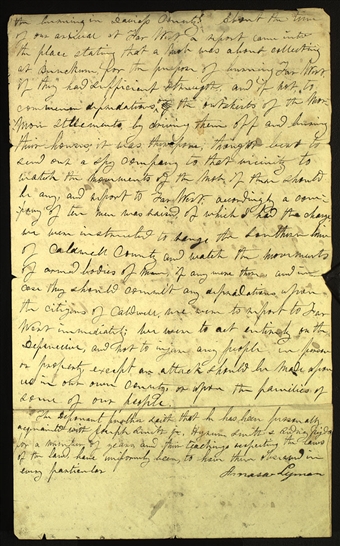 the burning in Daviess County. About the time
of our arrival at Far West a report came into
the place stating that a mob was about collecting
at Bunckum, for the purpose of burning Far West
if they had sufficient strength, and if not to
commence depradations on the outskirts of the Mor-
mon settlements, by driving them off and burning
their houses; it was therefore thought best to
send out a spy company to that vicinity to
watch the movements of the Mob, if there should
be any, and report to Far West. accordingly a com-
pany of ten men was raised, of which I had the charge
we were instructed to range the Southern line
of Caldwell County and watch the movements
of armed bodies of men, if any were there and in
case they should commit any depradations upon
the citizens of Caldwell, we were to report to Far
West immediately; we were to act entirely on the
defencive, and not to injure any people in person
or property except an attack should be made upon
us in our own County or upon the families of
some of our people
The Deponent further saith that he has been personally
acquainted with Joseph Smith Jr. Hyrum Smith & Sidney Rigdon
for a number of years and their teachings respecting the laws
of the land have uniformly been, to have them observed in
every particular
Amasa Lyman